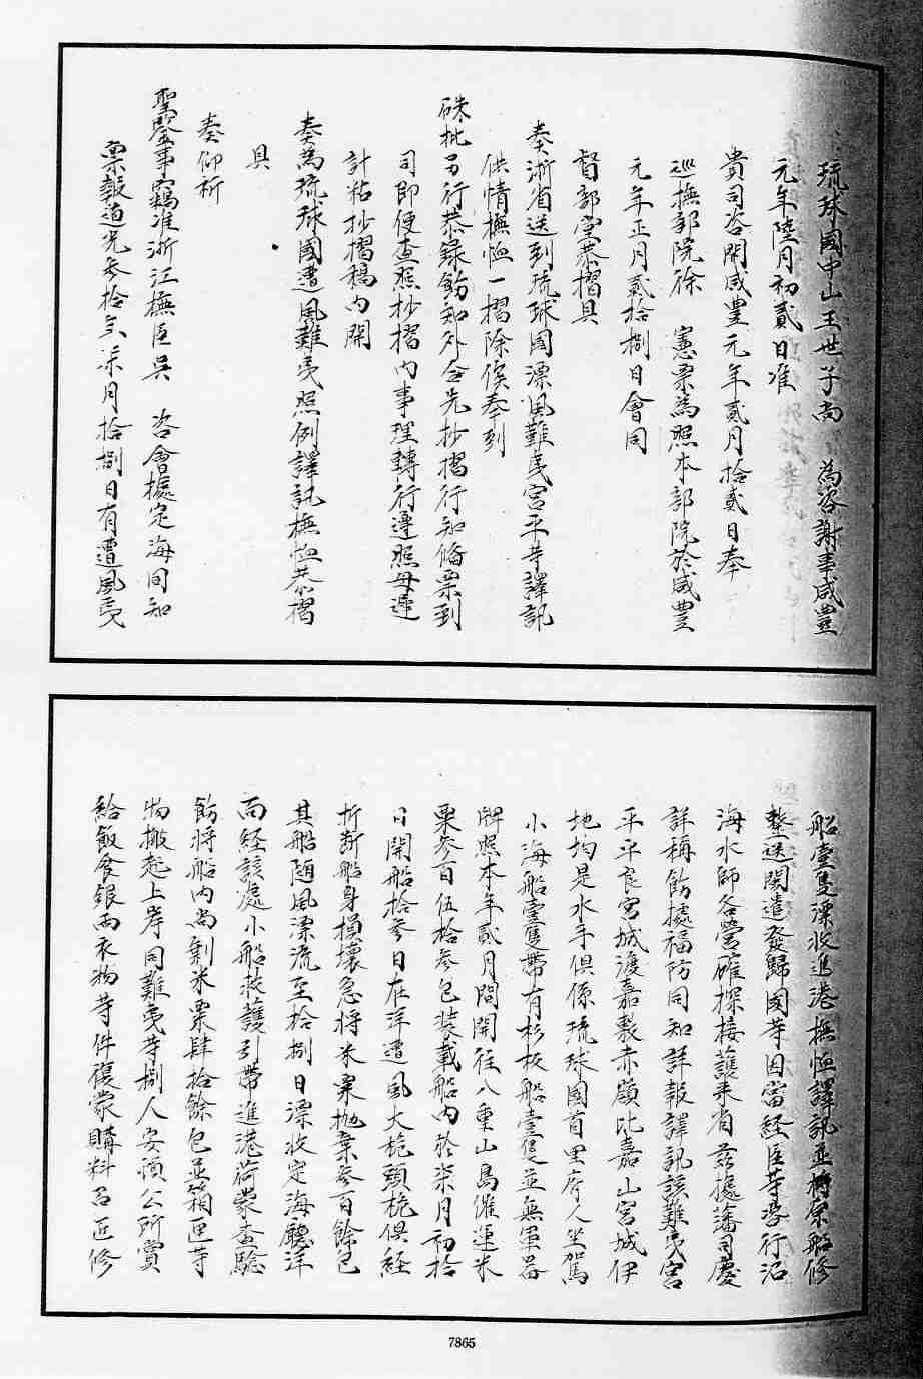 琉球國中山王世子尚　為咨謝事咸豐
元年陸月初貳日准
貴司咨開咸豐元年貳月拾貳日奉
巡撫部院徐　憲票為照本部院於咸豐
元年正月貳拾捌日會同
督部堂裕恭摺具
奏浙省送到琉球國漂風難夷宮平等譯訊
供情撫恤一摺除俟奉到
硃批另行恭錄飭知外合先抄摺行知備票到
司即便查照抄摺內事理轉行遵照毋違
計粘抄摺稿內開
奏為琉球國遭風難夷照例譯訊撫恤恭摺
具
奏仰祈
聖鑒事竊准浙江撫臣吳　咨會據定海同知
稟報道光參拾年柒月拾捌日有遭風夷
船壹隻漂收進港撫恤譯訊並將原船修
整送閩遣發歸國等因當經臣等愛行沿
海水師各營確探接護來省茲據藩司慶
詳稱飭據福防同知詳報譯訊該難夷宮
平平良宮城渡嘉敷赤嶺比嘉山宮城伊
地均是水手俱係琉球國首里府人坐駕
小海船壹隻帶有杉板船壹隻並無軍器
牌照本年貳月間開往八重山島催運米
粟參百伍拾參包裝載船內於柒月初拾
日開船拾參日在洋遭風大桅頭桅俱經
折斷船身損壞急將米粟拋棄參百餘包
其船隨風漂流至拾捌日漂收定海聽洋
面經該處小船救護引帶進港荷蒙查驗
飭將船內尚剩米粟肆拾餘包並箱匣等
物搬起上岸同難夷等捌人安頓公所賞
給飯食銀兩衣物等件復蒙購料召匠修
7865